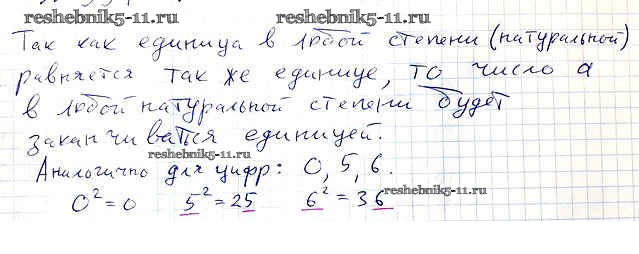 reshebnik5-11.ru reshebnik5-11.ru
Так как единица в любой степени (натуральной)
равняется так же единице, то число a
в любой натуральной степени будет
заканчиватся единицей.
reshebnik5-11.ru
Аналогично для цифр: 0, 5, 6.
reshebnik5-11.ru
0² = 0 5² = 25 6² = 36